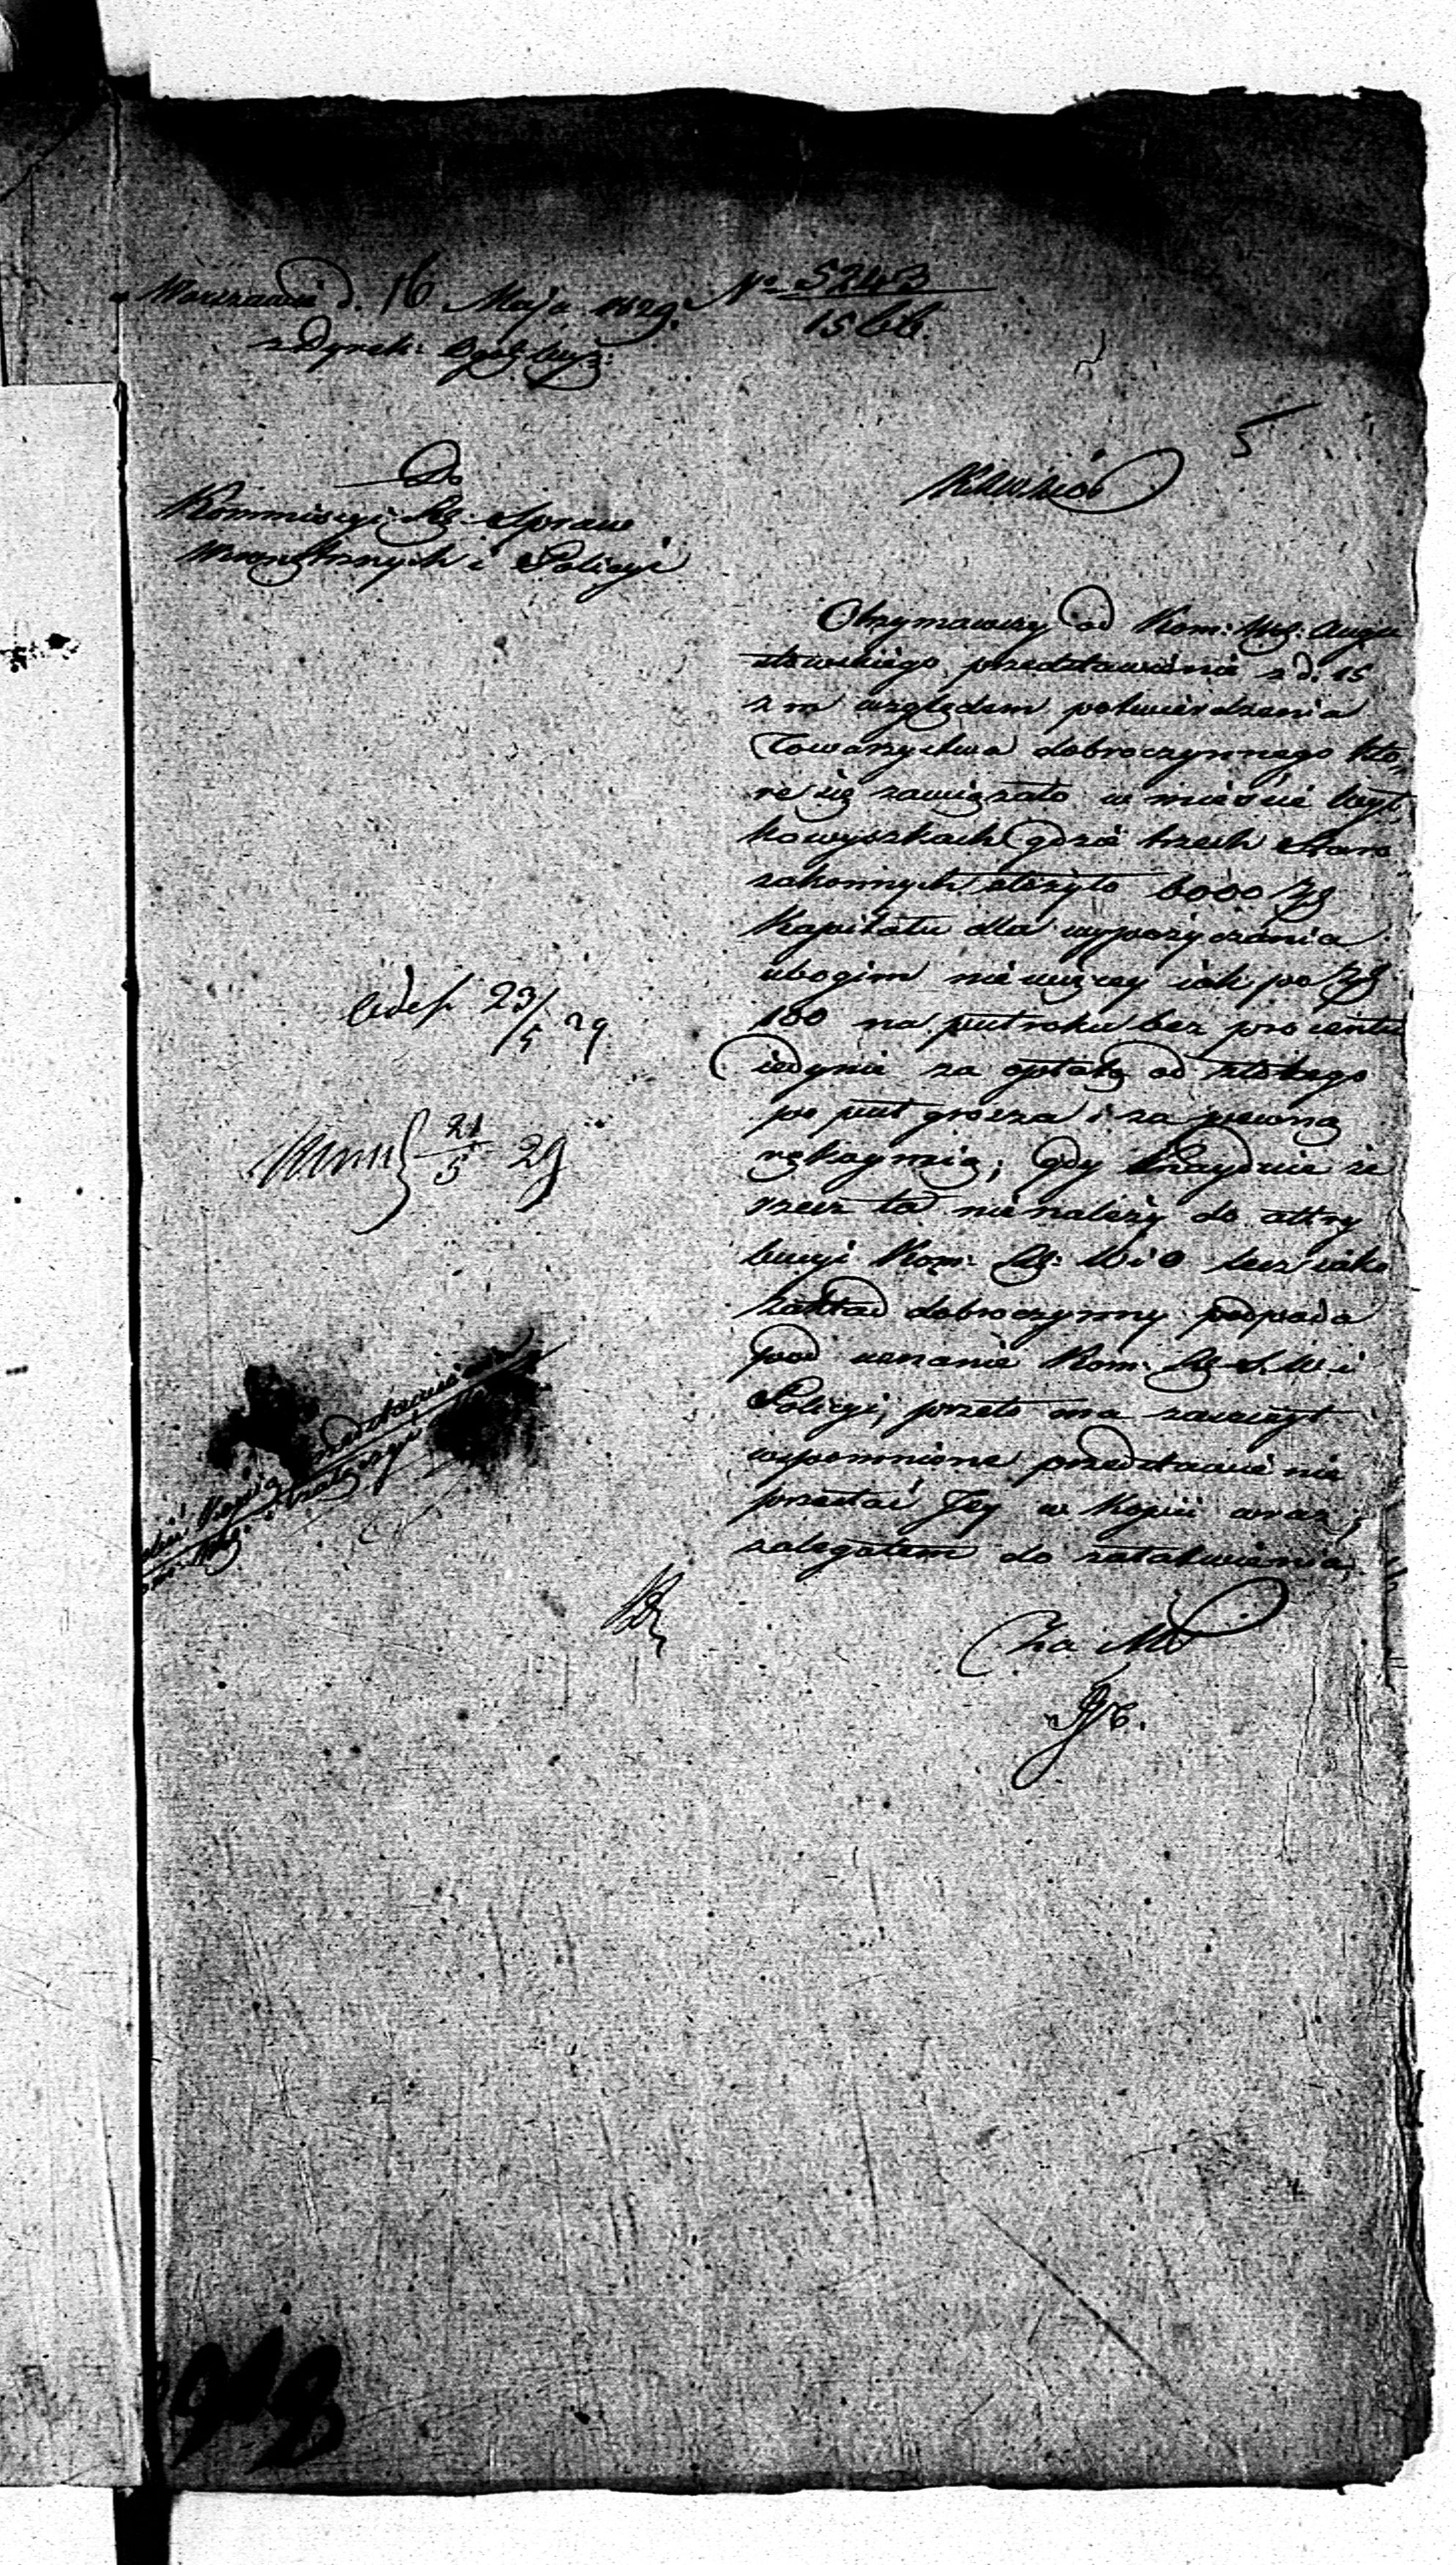 Warszawa d. 16 Maja 1829. No 5243
1566.
z Dyrek: Ogól:
Do
Kommissyi Rz: Spraw
Wewnętrznych i Policyi
5
Otrzymawszy od Kom: Wój: Augu
stowskiego przedstawienie z d. 15
z m względem potwierdzenia
Towarzystwa dobroczynnego któ,
re się zawiązało w mieście Wył,
kowyszkach gdzie trzech Staro
zakonnych złożyło 6000 Zł
kapitału dla wypożyczania
ubogim nie więcey iak po Zł
100 na puł roku bez procentu
iedynie za opłatą od złotego
po puł grosza i za pewną
rękoymią; gdy że
rzecz ta nienależy do attry
bucyi Kom: Rz: W i O lecz iako
zakład dobroczynny podpada
pod uznanie Kom: Rz. S. W. i
Policyi, przeto ma zaszczyt
wspomnione przedstawienie
przesłać Jey w kopii wraz z
zalegatem do załatwienia.
23/5 29
21/5 29
Kopią przedstawienia
Za M